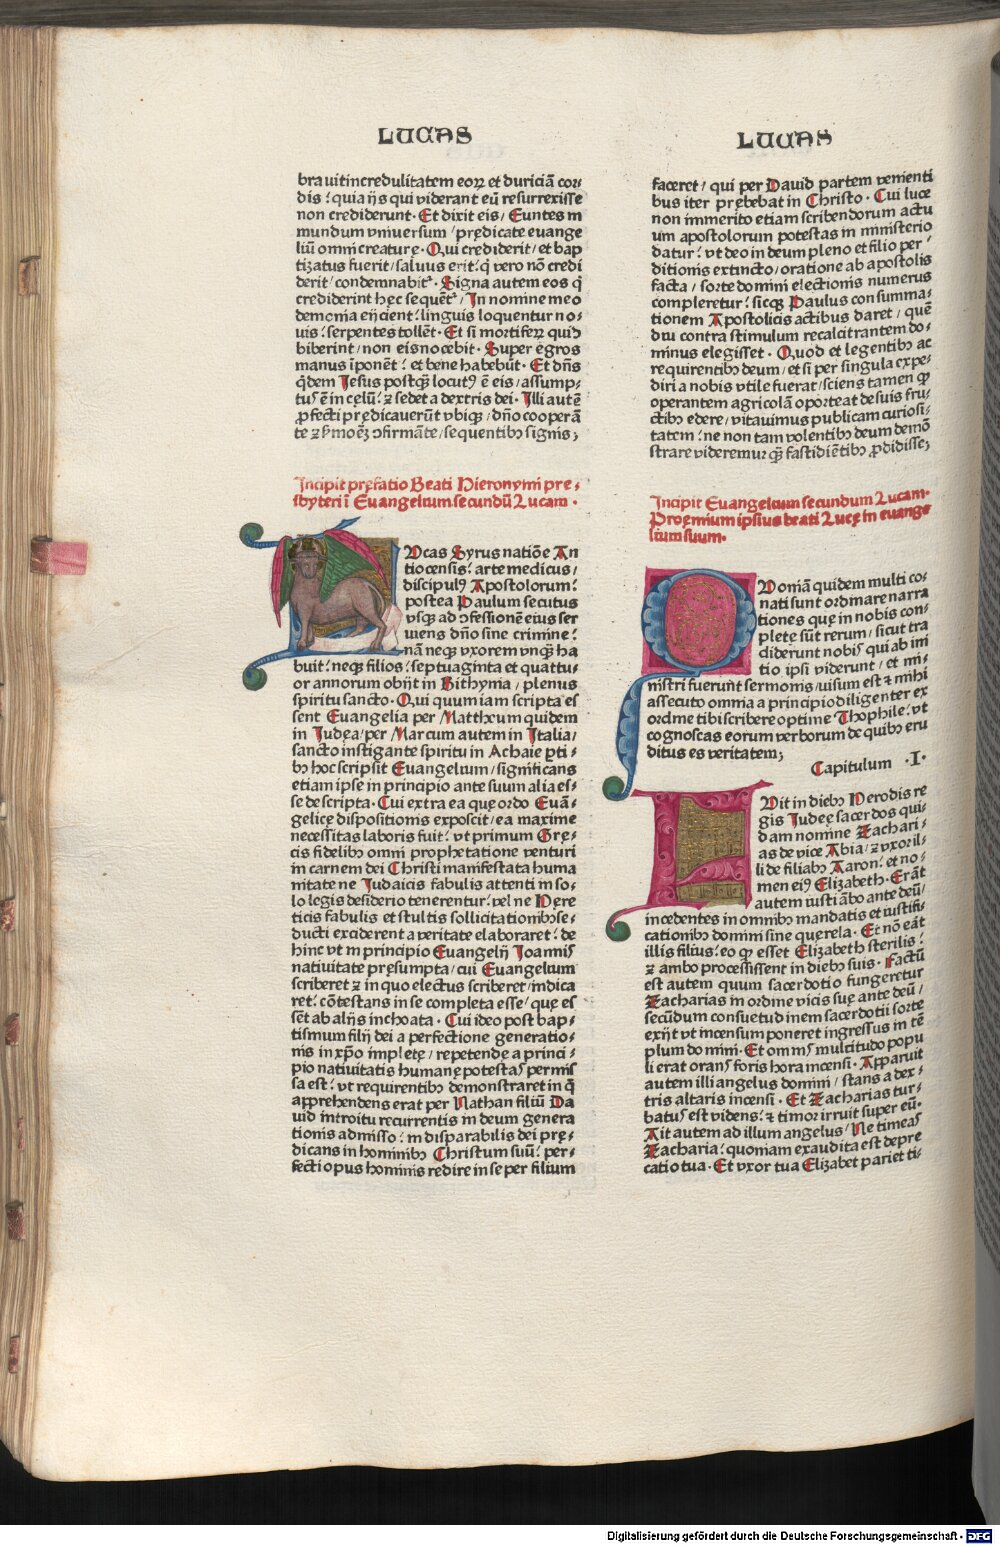 LUCAS
bra uit incredulitatem eoꝝ et duriciā cor⸗
dis: quia ijs qui viderant eū resurrexisse
non crediderunt. Et dixit eis/ Euntes in
mundum vniuersum/ prędicate euange
liū omni creaturę. Qui crediderit/ et bap
tizatus fuerit/ saluus erit: q̄ vero nō credi
derit/ condemnabitᷣ. Signa autem eos q̄
crediderint hęc sequētᷣ/ In nomine meo
demonia eijcient: linguis loquentur no⸗
uis: serpentes tollēt. Et si mortiferꝝ quid
biberint/ non eis nocebit. Super ęgros
manus īponēt: et bene habebūt. Et dn̄s
q̄dem Jesus postq̄ȝ locutꝰ ē eis/ assump⸗
tuſ ē in cęlū: ꝛ sedet a dextris dei. Illi autē
ꝓfecti prędicauerūt vbiqȝ/ dn̄o cooperā
te ꝛ ẜmoēȝ ↄfirmāte/ sequentibꝰ signis;
Incipit pręfatio Beati Hieronymi pre⸗
sbyteri ī Euangelium secundū Lucam.
Vcas Syrus natiōe An
tiocensis: arte medicus/
discipulꝰ Apostolorum:
postea Paulum secutus
vsqȝ ad ↄfessionē eius ser
uiens dn̄o sine crimine:
nā neqȝ vxorem vnq̄ȝ ha
buit: neqȝ filios: septuaginta et quattu⸗
or annorum obijt in Bithynia/ plenus
spiritu sancto. Qui quum iam scripta es
sent Euangelia per Mattheum quidem
in Iudęa/ per Marcum autem in Italia/
sancto instigante spiritu in Achaie ꝑti⸗
bꝰ hoc scripsit Euangelium/ significans
etiam ipse in principio ante suum alia es⸗
se descripta. Cui extra ea quę ordo Euā⸗
gelicę dispositionis exposcit/ ea maxime
necessitas laboris fuit: vt primum Gre⸗
cis fidelibꝰ omni prophetatione venturi
in carnem dei Christi manifestata huma
nitate ne Iudaicis fabulis attenti in so⸗
lo legis desiderio tenerentur: vel ne Here
ticis fabulis et stultis sollicitationibꝰ se⸗
ducti exciderent a veritate elaboraret: de
hinc vt in principio Euangelij Joannis
natiuitate pręsumpta/ cui Euangelium
scriberet ꝛ in quo electus scriberet/ indica
ret: cōtestans in se completa esse/ quę es
sēt ab alijs inchoata. Cui ideo post bap⸗
tismum filij dei a perfectione generatio⸗
nis in xp̄o implete/ repetendę a princi⸗
pio natiuitatis humanę potestas permis
sa est: vt requirentibꝰ demonstraret in q̄
apprehendens erat per Nathan filiū Da
uid introitu recurrentis in deum genera
tionis admisso: indisparabilis dei prę⸗
dicans in hominibꝰ Christum suū: per⸗
fecti opus hominis redire in se per filium
LUCAS
faceret/ qui per Dauid partem venienti
bus iter prębebat in Christo. Cui lucę
non immerito etiam scribendorum actu
um apostolorum potestas in ministerio
datur: vt deo in deum pleno et filio per⸗
ditionis extincto/ oratione ab apostolis
facta/ sorte domini electionis numerus
compleretur: sicqȝ Paulus consumma⸗
tionem Apostolicis actibus daret/ quē
diu contra stimulum recalcitrantem do⸗
minus elegisset. Quod et legentibꝰ ac
requirentibꝰ deum/ et si per singula expe⸗
diri a nobis vtile fuerat/ sciens tamen ꝙ
operantem agricolā oporteat de suis fru⸗
ctibꝰ edere/ vitauimus publicam curiosi⸗
tatem: ne non tam volentibꝰ deum demō
strare videremur q̄ȝ fastidiētibꝰ ꝓdidisse;
Incipit Euangelium secundum Lucam.
Proęmium ipsius beati Lucę in euange
lium suum.
Voniā quidem multi co⸗
nati sunt ordinare narra
tiones quę in nobis con⸗
pletę sūt rerum/ sicut tra
diderunt nobis qui ab ini
tio ipsi viderunt/ et mi⸗
nistri fuerunt sermonis/ uisum est ꝛ mihi
assecuto omnia a principio diligenter ex
ordine tibi scribere optime Thophile: vt
cognoscas eorum verborum de quibꝰ eru
ditus es veritatem;
Capitulum .I.
Vit in diebꝰ Herodis re
gis Judeę sacerdos qui⸗
dam nomine Zachari⸗
as de vice Abia/ ꝛ vxor il⸗
li de filiabꝰ Aaron: et no⸗
men eiꝰ Elizabeth. Erāt
autem iusti ābo ante deū/
incedentes in omnibꝰ mandatis et iustifi
cationibꝰ domini sine querela. Et nō eāt
illis filius: eo ꝙ esset Elizabeth sterilis:
ꝛ ambo processissent in diebꝰ suis. Factū
est autem quum sacerdotio fungeretur
Zacharias in ordine vicis suę ante deū/
secūdum consuetudinem sacerdotij sorte
exijt vt incensum poneret ingressus in tē
plum domini. Et omnis multitudo popu
li erat orans foris hora incensi. Apparuit
autem illi angelus domini/ stans a dex⸗
tris altaris incensi. Et Zacharias tur⸗
batus est videns: ꝛ timor irruit super eū.
Ait autem ad illum angelus/ Ne timeas
Zacharia: quoniam exaudita est depre
catio tua. Et vxor tua Elizabet pariet ti⸗
Digitalisierung gefördert durch die Deutsche Forschungsgemeinschaft - DFG